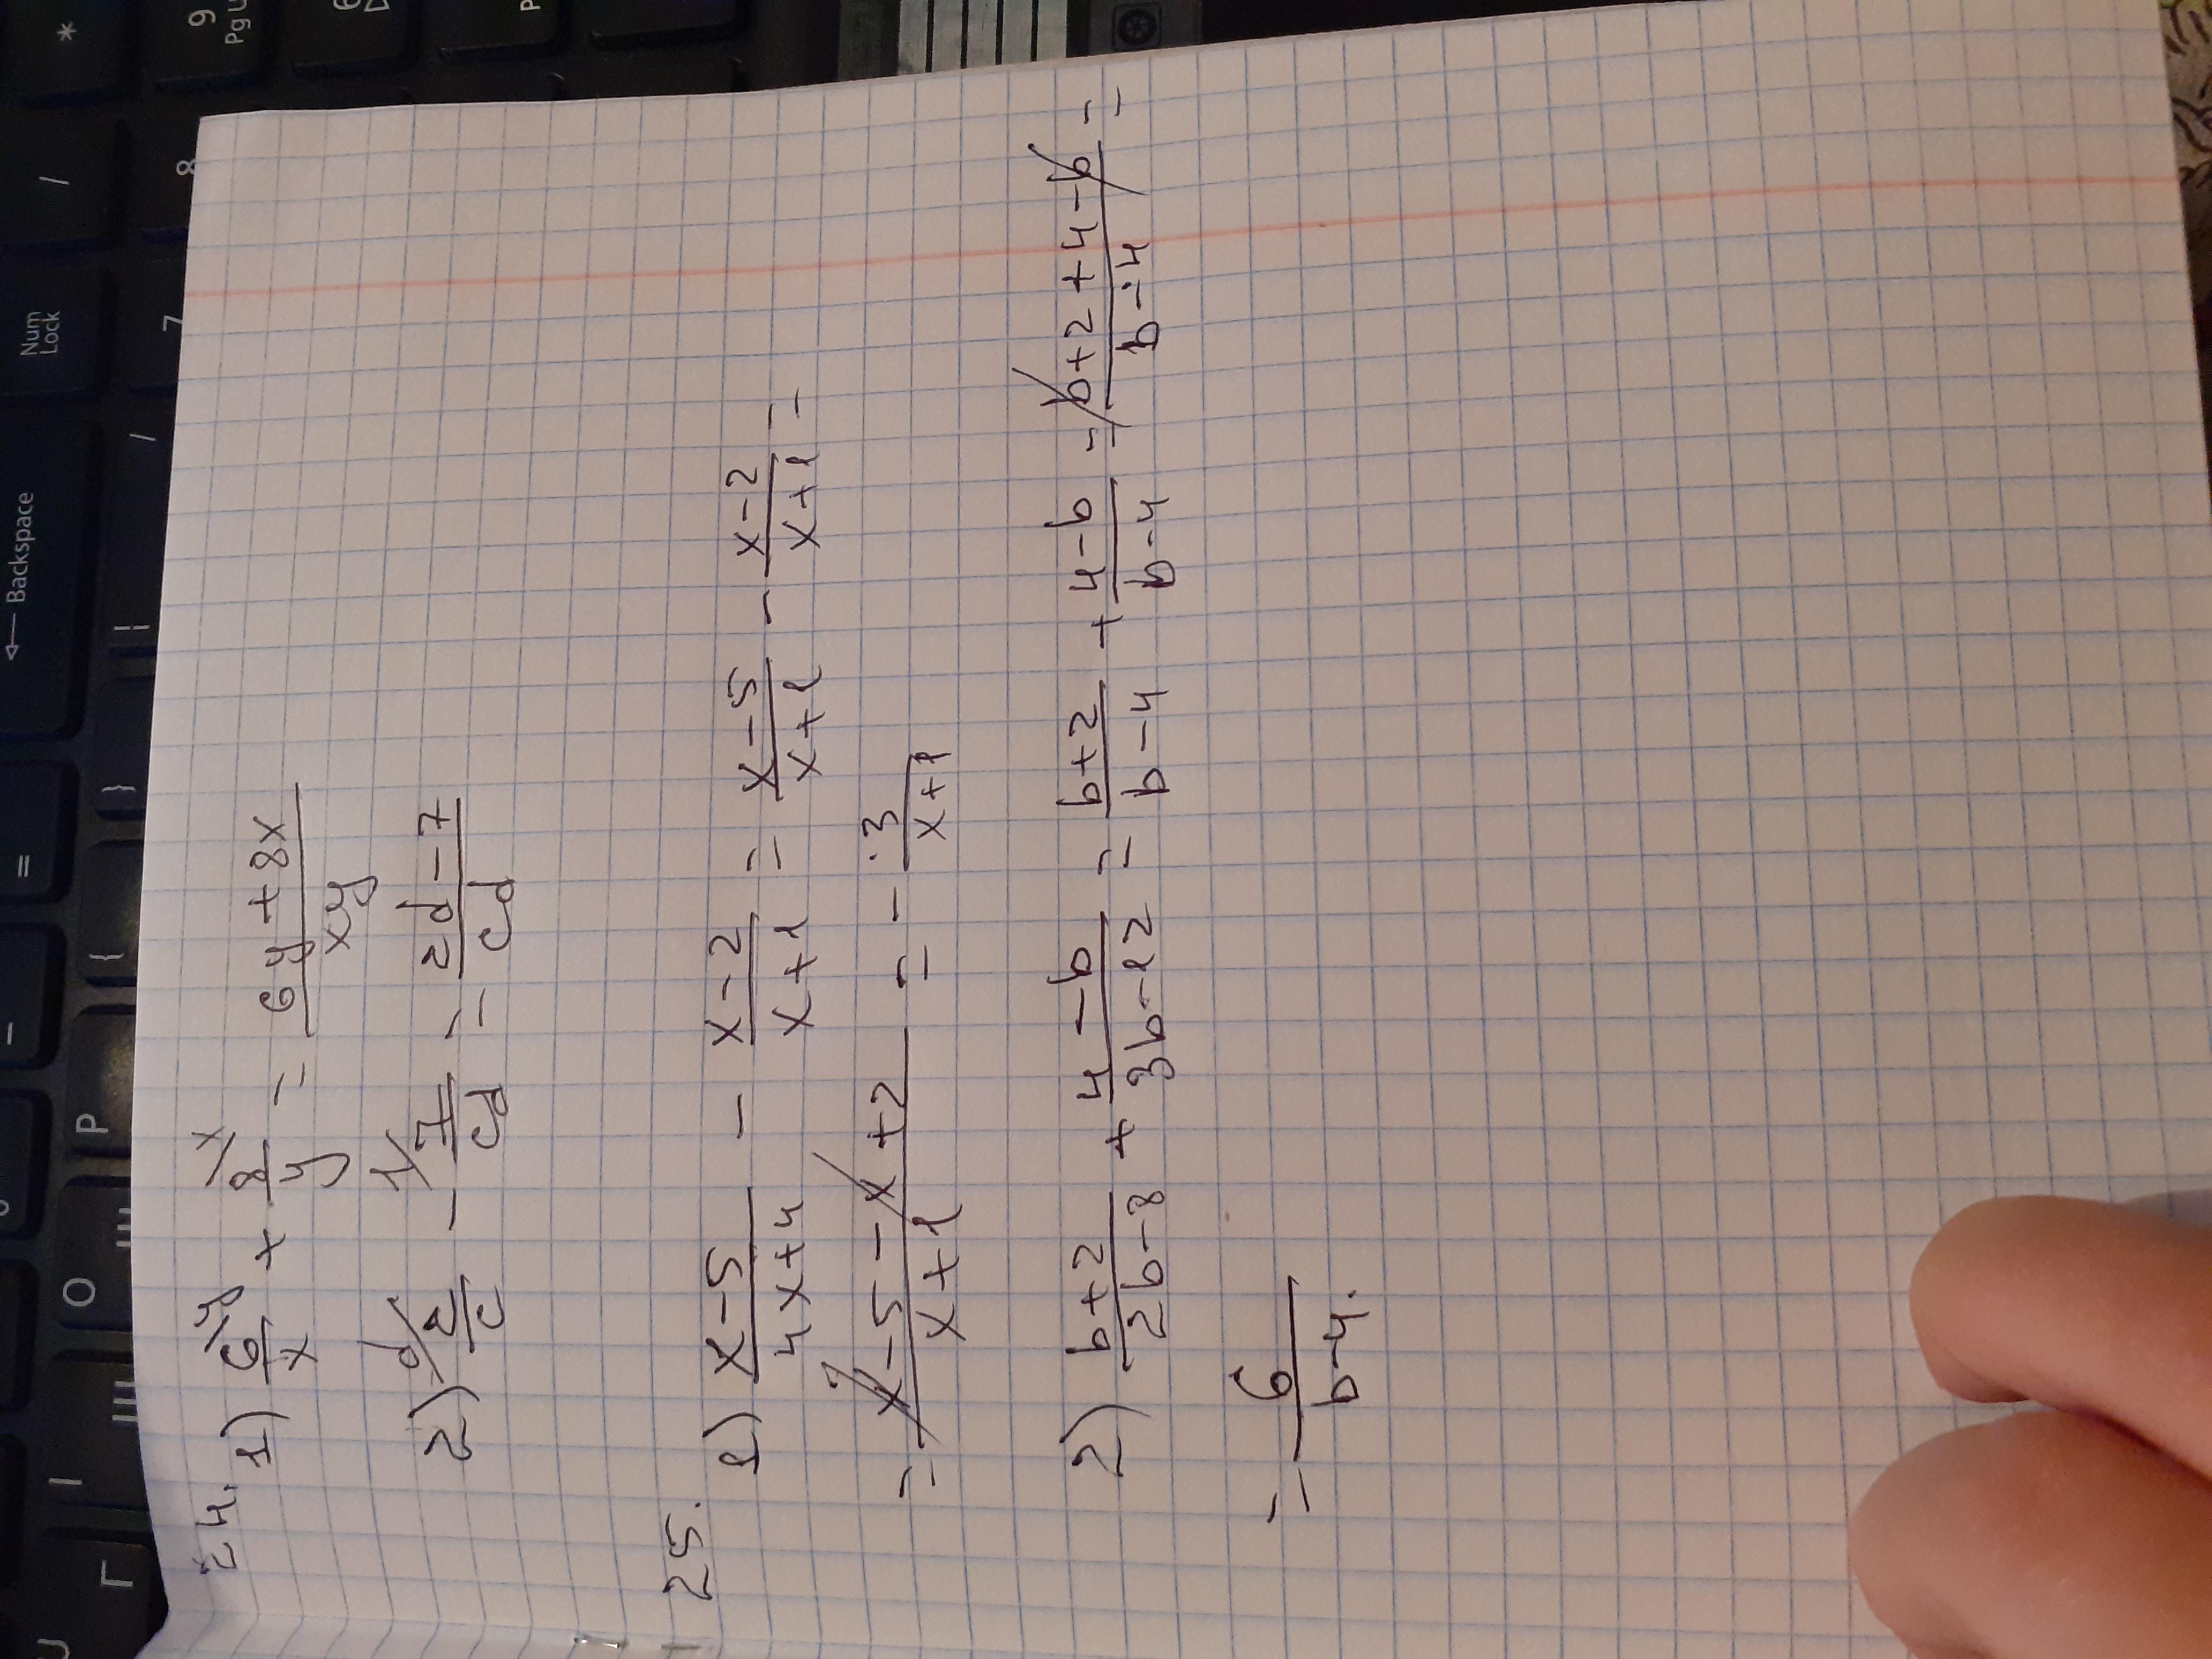 24.
1) 6\y/x + 8\x/y = (6y + 8x)/xy
2) d/2/c - 1/7/cd = (2d - 7)/cd
25.
1) (x-5)/(4x+4) - (x-2)/(x+1) = (x-5)/(x+1) - (x-2)/(x+1) =
= (x-5-x+2)/(x+1) = - 3/(x+1)
2) (b+2)/(2b-8) + (4-b)/(3b-12) = (b+2)/(b-4) + (4-b)/(b-4) = (b+2+4-b)/(b-4) =
= 6/(b-4).
* 9 Pg U 6
/ 8
Num Lock 7
← Backspace /
=
}
{
P
O
Г